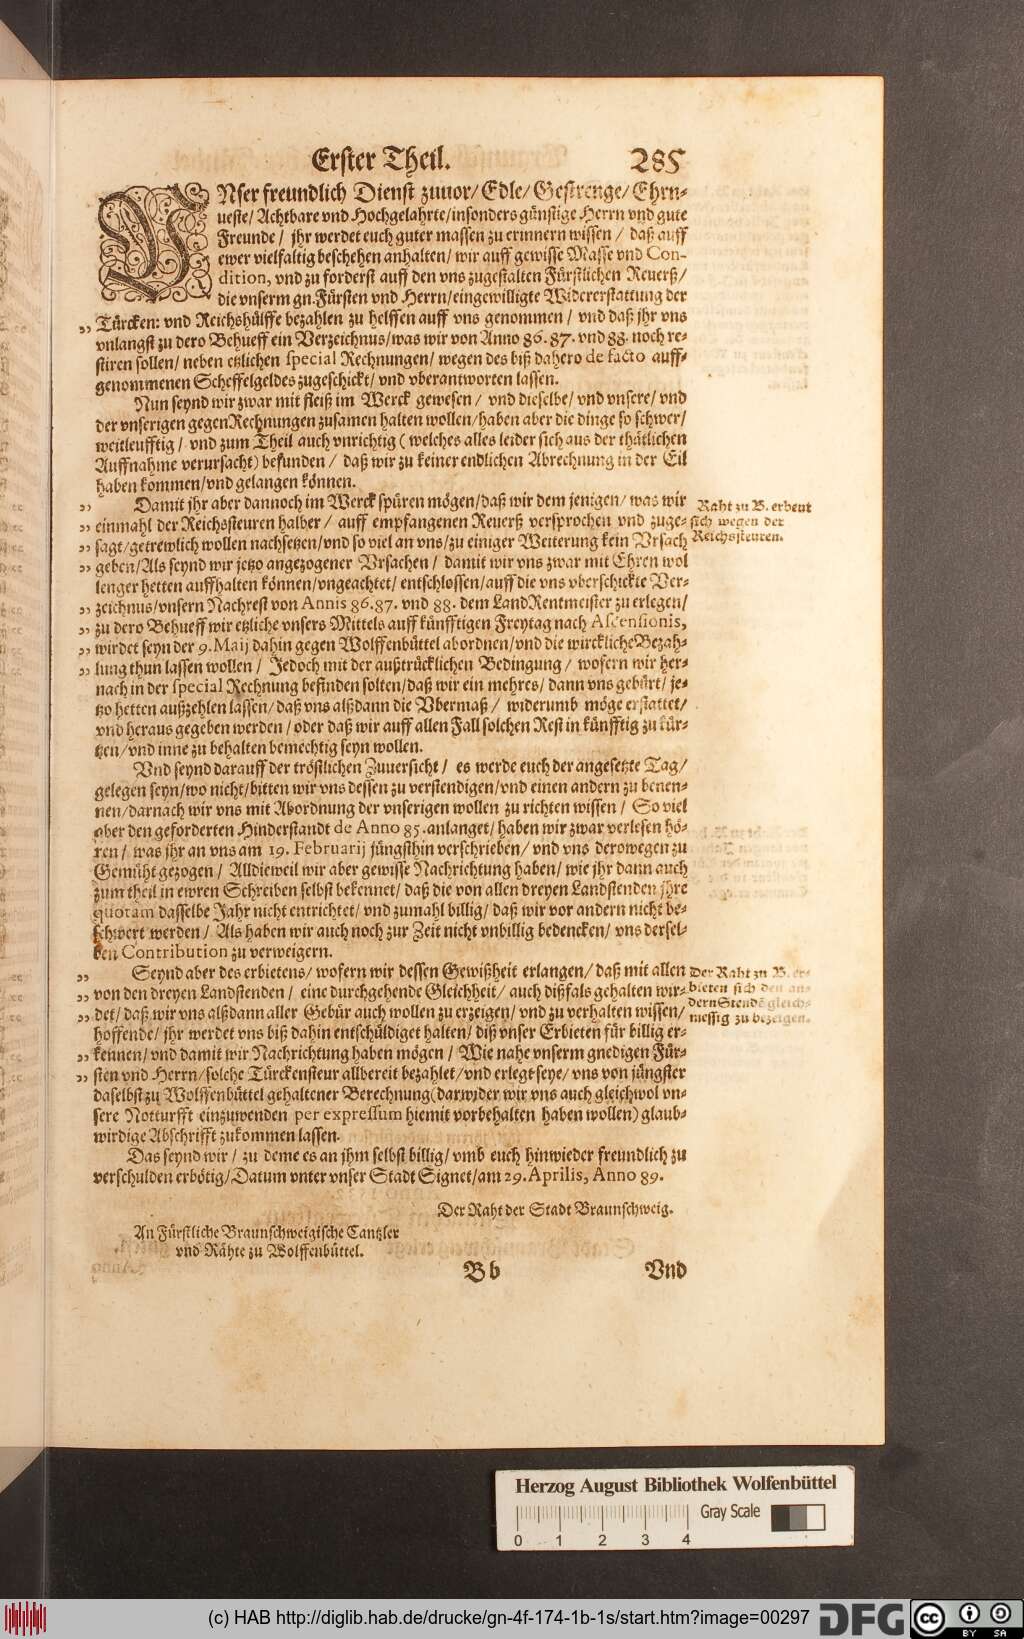 Erster Theil. 285
VNser freundlich Dienst zuuor/ Edle/ Gestrenge/ Ehrn-
ueste/ Achtbare vnd Hochgelahrte/ insonders günstige Herrn vnd gute
Freunde / jhr werdet euch guter massen zu erinnern wissen / daß auff
ewer vielfaltig beschehen anhalten/ wir auff gewisse Masse vnd Con-
dition, vnd zu forderst auff den vns zugestalten Fürstlichen Reuerß/
die vnserm gn. Fürsten vnd Herrn/ eingewilligte Widererstattung der
Türcken: vnd Reichshülffe bezahlen zu helffen auff vns genommen / vnd daß jhr vns
vnlangst zu dero Behueff ein Verzeichnus/ was wir von Anno 86. 87. vnd 88. noch re-
stiren sollen/ neben etzlichen special Rechnungen/ wegen des biß dahero de facto auff-
genommenen Scheffelgeldes zugeschickt/ vnd vberantworten lassen.
Nun seynd wir zwar mit fleiß im Werck gewesen / vnd dieselbe/ vnd vnsere/ vnd
der vnserigen gegen Rechnungen zusamen halten wollen/ haben aber die dinge so schwer/
weitleufftig / vnd zum Theil auch vnrichtig ( welches alles leider sich aus der thätlichen
Auffnahme verursacht) befunden / daß wir zu keiner endlichen Abrechnung in der Eil
haben kommen/ vnd gelangen können.
Damit jhr aber dannoch im Werck spüren mögen/ daß wir dem jenigen/ was wir
einmahl der Reichssteuren halber / auff empfangenen Reuerß versprochen vnd zuge-
sagt/ getrewlich wollen nachsetzen/ vnd so viel an vns/ zu einiger Weiterung kein Vrsach
geben/ Als seynd wir jetzo angezogener Vrsachen / damit wir vns zwar mit Ehren wol
lenger hetten auffhalten können/ vngeachtet/ entschlossen/ auff die vns vberschickte Ver-
zeichnus/ vnsern Nachrest von Annis 86. 87. vnd 88. dem LandRentmeister zu erlegen/
zu dero Behueff wir etzliche vnsers Mittels auff künfftigen Freytag nach Ascensionis,
wirdet seyn der 9. Maij dahin gegen Wolffenbüttel abordnen/ vnd die wirckliche Bezah-
lung thun lassen wollen / Jedoch mit der außtrücklichen Bedingung / wofern wir her-
nach in der special Rechnung befinden solten/ daß wir ein mehres/ dann vns gebürt/ je-
tzo hetten außzehlen lassen/ daß vns alßdann die Vbermaß / widerumb möge erstattet/
vnd heraus gegeben werden / oder daß wir auff allen Fall solchen Rest in künfftig zu kür-
tzen/ vnd inne zu behalten bemechtig seyn wollen.
Raht zu B. erbeut
sich wegen der
Reichssteuren.
Vnd seynd darauff der tröstlichen Zuuersicht / es werde euch der angesetzte Tag/
gelegen seyn/ wo nicht/ bitten wir vns dessen zu verstendigen/ vnd einen andern zu benen-
nen/ darnach wir vns mit Abordnung der vnserigen wollen zu richten wissen / So viel
aber den geforderten Hinderstandt de Anno 85. anlanget/ haben wir zwar verlesen hö-
ren / was jhr an vns am 19. Februarij jüngsthin verschrieben/ vnd vns derowegen zu
Gemüht gezogen / Alldieweil wir aber gewisse Nachrichtung haben/ wie jhr dann auch
zum theil in ewren Schreiben selbst bekennet/ daß die von allen dreyen Landstenden jhre
quotam dasselbe Jahr nicht entrichtet/ vnd zumahl billig/ daß wir vor andern nicht be-
schwert werden / Als haben wir auch noch zur Zeit nicht vnbillig bedencken/ vns dersel-
ben Contribution zu verweigern.
Seynd aber des erbietens/ wofern wir dessen Gewißheit erlangen/ daß mit allen
von den dreyen Landstenden / eine durchgehende Gleichheit/ auch dißfals gehalten wir-
det/ daß wir vns alßdann aller Gebür auch wollen zu erzeigen/ vnd zu verhalten wissen/
hoffende/ jhr werdet vns biß dahin entschüldiget halten/ diß vnser Erbieten für billig er-
kennen/ vnd damit wir Nachrichtung haben mögen / Wie nahe vnserm gnedigen Für-
sten vnd Herrn/ solche Türckensteur allbereit bezahlet/ vnd erlegt seye/ vns von jüngster
daselbst zu Wolffenbüttel gehaltener Berechnung (darwider wir vns auch gleichwol vn-
sere Notturfft einzuwenden per expressum hiemit vorbehalten haben wollen) glaub-
wirdige Abschrifft zukommen lassen.
Der Raht zu B. er-
bieten sich den an-
dern Stendē gleich-
messig zu bezeigen.
Das seynd wir / zu deme es an jhm selbst billig/ vmb euch hinwieder freundlich zu
verschulden erbötig/ Datum vnter vnser Stadt Signet/ am 29. Aprilis, Anno 89.
Der Raht der Stadt Braunschweig.
An Fürstliche Braunschweigische Cantzler
vnd Rähte zu Wolffenbüttel.
B b Vnd
Herzog August Bibliothek Wolfenbüttel
Gray Scale
0 1 2 3 4
(c) HAB http://diglib.hab.de/drucke/gn-4f-174-1b-1s/start.htm?image=00297 DFG cc BY SA